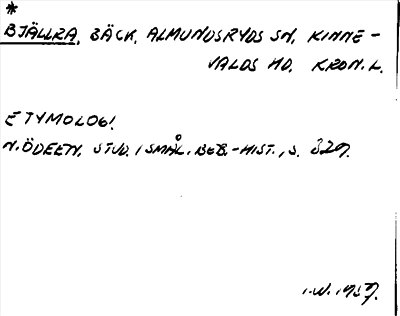 *
BJÄLLRA, BÄCK, ALMUNDSRYDS SN, KINNE-
VALDS HD. KRON. L.
ETYMOLOGI
N. ÖDEEN, STUD. I SMÅL. BEB.-HIST., S. 329.
I.W. 1957.